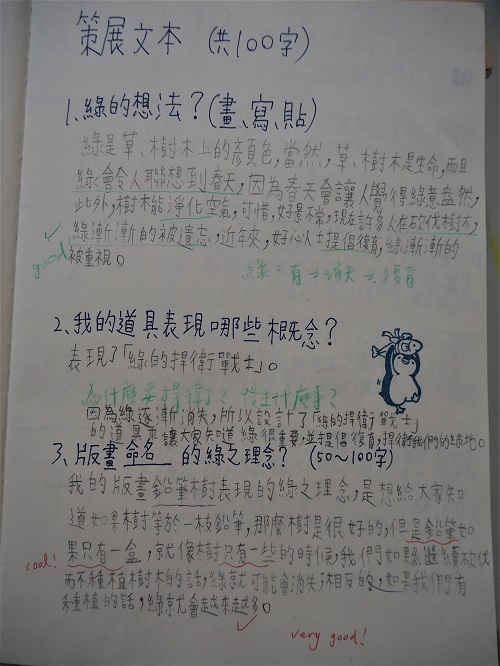 策展文本 (共100字)
1.綠的想法?(畫、寫、貼)
綠是草、樹木上的顏色,當然,草、樹木是生命,而且
綠會令人聯想到春天,因為春天會讓人覺得綠意盎然,
此外,樹木能淨化空氣,可惜,好景不常,現在許多人在砍伐樹木,
綠漸漸的被遺忘,近年來,好心人士提倡復育,綠漸漸的
被重視。
good
綠:有→消失→復育
2、我的道具表現哪些概念?
表現了「綠的捍衛戰士」。
為什麼要捍衛?發生什麼事?
因為綠逐漸消失,所以設計了「綠的捍衛戰士」
的道具來讓大家知道綠很重要,並提倡復育,捍衛我們的綠地。
3、版畫命名 的綠之理念?(50~100字)
我的版畫鉛筆樹表現的綠之理念,是想給大家知
道如果樹等於一枝鉛筆,那麼樹是很好的,但是鉛筆如
果只有一盒,就像樹只有一些的時候,我們如果繼續砍伐
而不種植樹木的話,綠就可能會消失;相反的,如果我們有
種植的話,綠就會越來越多。
cool!
very good!